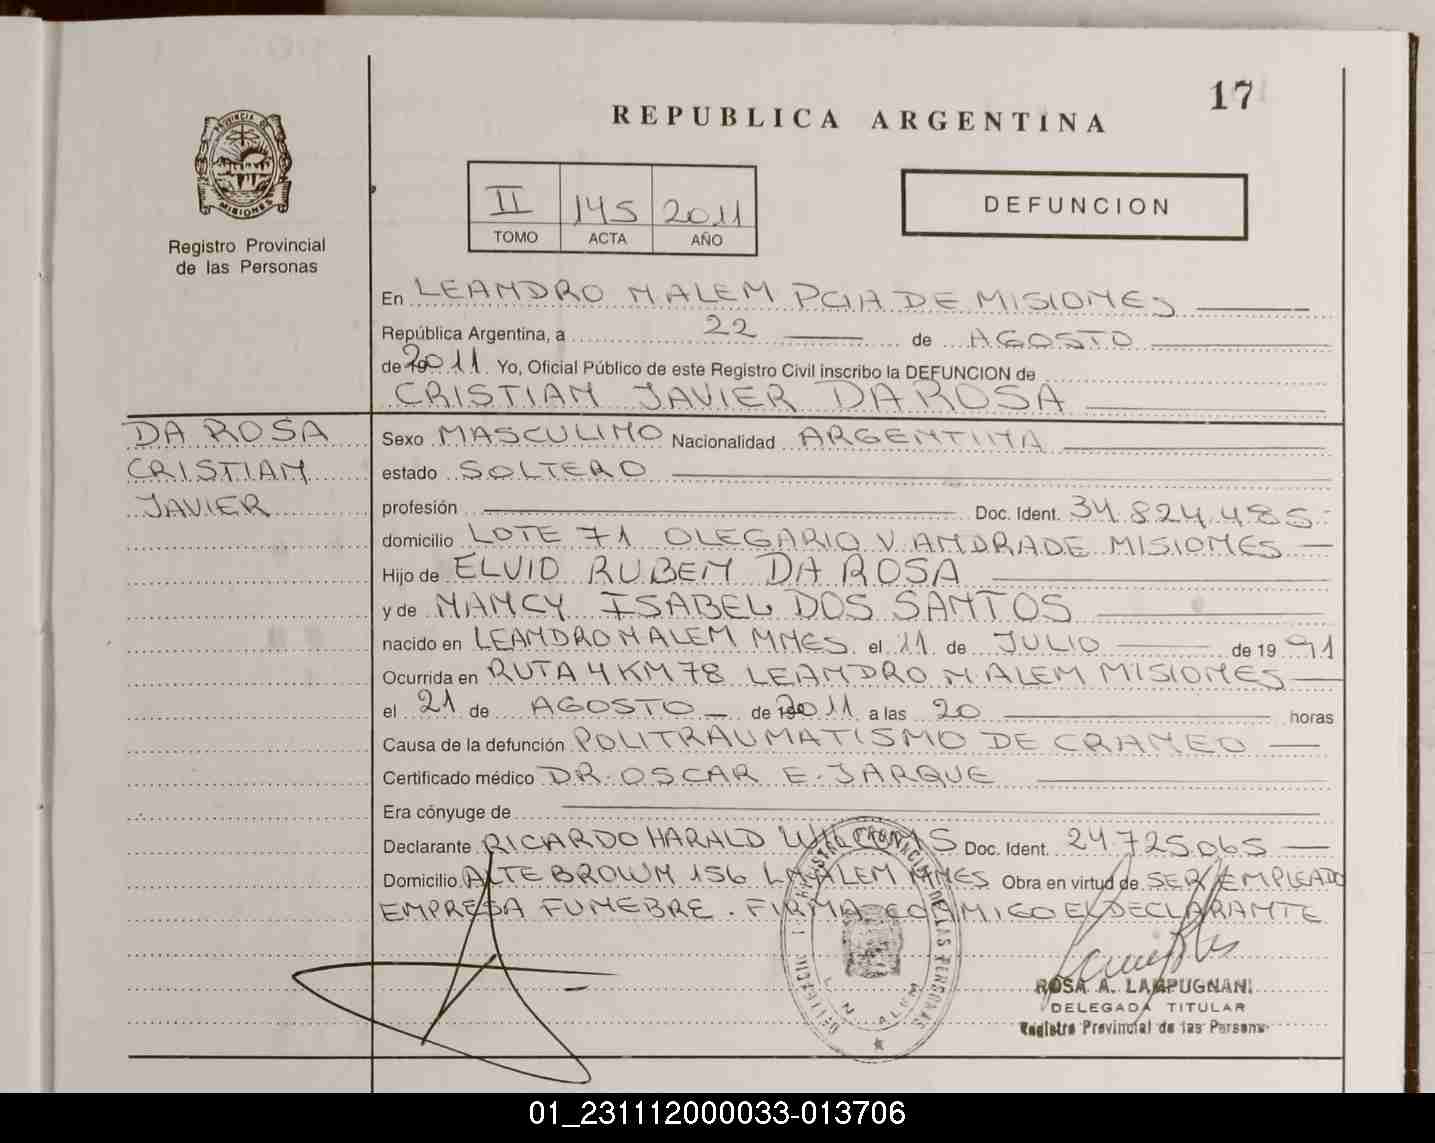 17
REPUBLICA ARGENTINA
PROVINCIA DE
MISIONES
Registro Provincial
de las Personas
II 145 2011
TOMO ACTA AÑO
DEFUNCION
En LEANDRO N ALEM PCIA DE MISIONES
República Argentina, a 22 de AGOSTO
de 2011. Yo, Oficial Público de este Registro Civil inscribo la DEFUNCION de
CRISTIAN JAVIER DA ROSA
DA ROSA
CRISTIAN
JAVIER
Sexo MASCULINO Nacionalidad ARGENTINA
estado SOLTERO
profesión Doc. Ident. 34.824.485
domicilio LOTE 71 OLEGARIO V ANDRADE MISIONES
Hijo de ELVIO RUBEN DA ROSA
y de NANCY ISABEL DOS SANTOS
nacido en LEANDRO N ALEM MNES el 11 de JULIO de 1991
Ocurrida en RUTA 4 KM 78 LEANDRO N ALEM MISIONES
el 21 de AGOSTO de 2011 a las 20 horas
Causa de la defunción POLITRAUMATISMO DE CRANEO
Certificado médico DR. OSCAR E. JARQUE
Era cónyuge de
Declarante RICARDO HARALD Doc. Ident. 24725065
Domicilio ALTE BROWN 156 L N ALEM MNES Obra en virtud de SER EMPLEADO
EMPRESA FUNEBRE. FIRMA CONMIGO EL DECLARANTE
REGISTRO PROVINCIAL DE LAS PERSONAS
L. N. ALEM
ROSA A. LAMPUGNANI
DELEGADA TITULAR
Registro Provincial de las Persona
01_231112000033-013706